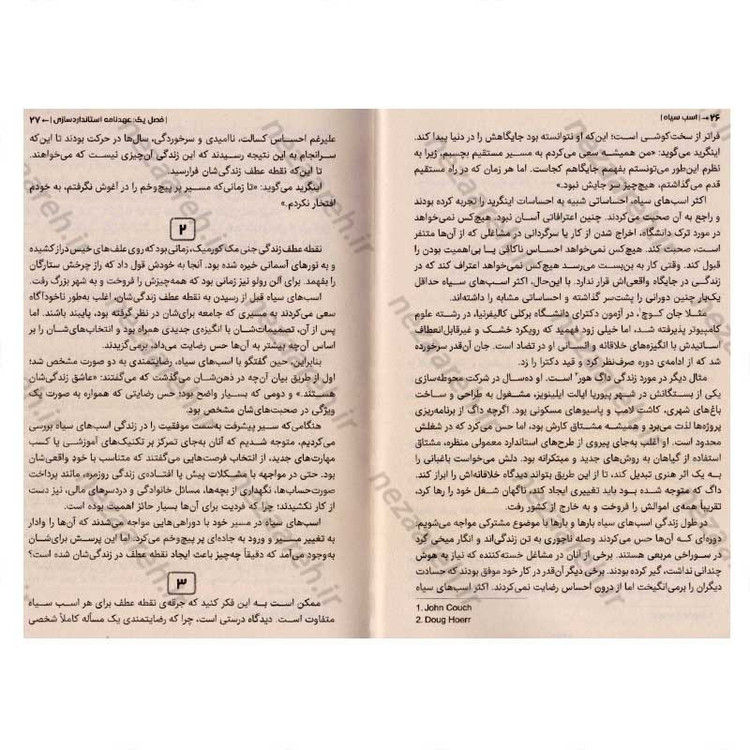 ۲۶ ← | اسب سیاه |
فراتر از سخت‌کوشی است؛ این‌که او نتوانسته بود جایگاهش را در دنیا پیدا کند.
اینگرید می‌گوید: «من همیشه سعی می‌کردم به مسیر مستقیم بچسبم، زیرا به
نظرم این‌طور می‌تونستم بفهمم جایگاهم کجاست. اما هر زمان که در راه مستقیم
قدم می‌گذاشتم، هیچ‌چیز سر جایش نبود.»
اکثر اسب‌های سیاه، احساساتی شبیه به احساسات اینگرید را تجربه کرده بودند
و راجع به آن صحبت می‌کردند. چنین اعترافاتی آسان نبود. هیچ‌کس نمی‌خواهد
در مورد ترک دانشگاه، اخراج شدن از کار یا سرگردانی در مشاغلی که از آن‌ها متنفر
است، صحبت کند. هیچ‌کس نمی‌خواهد احساس ناکافی یا بی‌اهمیت بودن را
قبول کند. وقتی کار به بن‌بست می‌رسد هیچ‌کس نمی‌خواهد اعتراف کند که در
زندگی در جایگاه واقعی‌اش قرار ندارد. با این‌حال، اکثر اسب‌های سیاه حداقل
یک‌بار چنین دورانی را پشت‌سر گذاشته و احساساتی مشابه را داشته‌اند.
مثلا جان کوچ۱، در آزمون دکترای دانشگاه برکلی کالیفرنیا، در رشته علوم
کامپیوتر پذیرفته شد، اما خیلی زود فهمید که رویکرد خشک و غیرقابل‌انعطاف
اساتیدش با انگیزه‌های خلاقانه و انسانی او در تضاد است. جان آن‌قدر سرخورده
شد که از ادامه‌ی دوره صرف‌نظر کرد و قید دکترا را زد.
مثال دیگر در مورد زندگی داگ هور۲ است. او ده‌سال در شرکت محوطه‌سازی
یکی از بستگانش در شهر پیوریا ایالت ایلینویز، مشغول به طراحی و ساخت
باغ‌های شهری، کاشت لامپ و پاسیوهای مسکونی بود. اگرچه داگ از برنامه‌ریزی
پروژه‌ها لذت می‌برد و همیشه مشتاق کارش بود، اما حس می‌کرد که در شغلش
محدود است. او اغلب به‌جای پیروی از طرح‌های استاندارد معمولی منظره، مشتاق
استفاده از گیاهان به روش‌های جدید و مبتکرانه بود. دلش می‌خواست باغبانی را
به یک اثر هنری تبدیل کند، تا از این طریق بتواند دیدگاه خلاقانه‌اش را ابراز کند.
داگ که متوجه شده بود باید تغییری ایجاد کند، ناگهان شغل خود را رها کرد،
تقریباً همه‌ی اموالش را فروخت و به خارج از کشور رفت.
در طول زندگی اسب‌های سیاه بارها و بارها با موضوع مشترکی مواجه می‌شویم:
دوره‌ای که آن‌ها حس می‌کردند وصله ناجوری به تن زندگی‌اند و انگار میخی گرد
در سوراخی مربعی هستند. برخی از آنان در مشاغل خسته‌کننده که نیاز به هوش
چندانی نداشت، گیر کرده بودند. برخی دیگر آن‌قدر در کار خود موفق بودند که حسادت
دیگران را برمی‌انگیخت اما از درون احساس رضایت نمی‌کردند. اکثر اسب‌های سیاه
1. John Couch
2. Doug Hoerr
| فصل یک: عهدنامه استانداردسازی | ← ۲۷
علیرغم احساس کسالت، ناامیدی و سرخوردگی، سال‌ها در حرکت بودند تا این‌که
سرانجام به این نتیجه رسیدند که این زندگی آن‌چیزی نیست که می‌خواهند.
تا این‌که نقطه عطف زندگی‌شان فرارسید.
اینگرید می‌گوید: «تا زمانی‌که مسیر پر پیچ‌وخم را در آغوش نگرفتم، به خودم
افتخار نکردم.»
۲
نقطه عطف زندگی جنی مک کورمیک، زمانی بود که روی علف‌های خیس دراز کشیده
و به نورهای آسمانی خیره شده بود. آنجا به خودش قول داد که راز چرخش ستارگان
را بفهمد. برای آلن رولو نیز زمانی بود که همه‌چیزش را فروخت و به شهر بزرگ رفت.
اسب‌های سیاه قبل از رسیدن به نقطه عطف زندگی‌شان، اغلب به‌طور ناخودآگاه
سعی می‌کردند به مسیری که جامعه برای‌شان در نظر گرفته بود، پایبند باشند. اما
پس از آن، تصمیمات‌شان با انگیزه‌ی جدیدی همراه بود و انتخاب‌های‌شان را بر
اساس آن‌چه بیشتر به آن‌ها حس رضایت می‌داد، برمی‌گزیدند.
بنابراین، حین گفتگو با اسب‌های سیاه، رضایتمندی به دو صورت مشخص شد؛
اول از طریق بیان آن‌چه در ذهن‌شان می‌گذشت که می‌گفتند: «عاشق زندگی‌شان
هستند.» و دومی که بسیار واضح بود؛ حس رضایتی که همواره به صورت یک
ویژگی در صحبت‌های‌شان مشخص بود.
هنگامی‌که سیر پیشرفت به‌سمت موفقیت را در زندگی اسب‌های سیاه بررسی
می‌کردیم، متوجه شدیم که آنان به‌جای تمرکز بر تکنیک‌های آموزشی یا کسب
مهارت‌های جدید، از انتخاب فرصت‌هایی می‌گفتند که متناسب با خود واقعی‌شان
بود. حتی در مواجهه با مشکلات پیش پا افتاده‌ی زندگی روزمره، مانند پرداخت
صورت‌حساب‌ها، نگهداری از بچه‌ها، مسائل خانوادگی و دردسرهای مالی، نیز دست
از کار نکشیدند؛ چرا که فردیت برای آن‌ها بسیار حائز اهمیت بوده است.
اسب‌های سیاه در مسیر خود با دوراهی‌هایی مواجه می‌شدند که آن‌ها را وادار
به تغییر مسیر و ورود به جاده‌ای پر پیچ‌وخم می‌کرد. اما این پرسش برای‌شان
به‌وجود می‌آمد که دقیقاً چه‌چیز باعث ایجاد نقطه عطف در زندگی‌شان شده است؟
۳
ممکن است به این فکر کنید که جرقه‌ی نقطه عطف برای هر اسب سیاه
متفاوت است. دیدگاه درستی است، چرا که رضایتمندی یک مسأله کاملاً شخصی
nezareh.ir